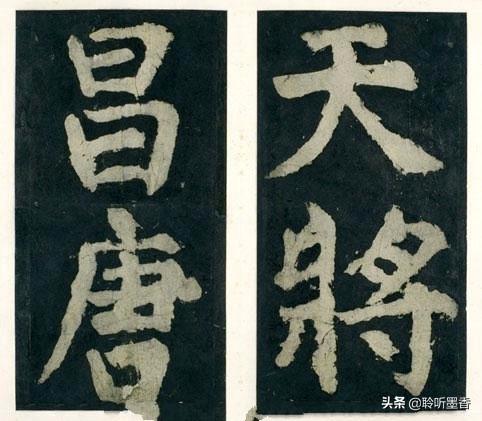 天將
昌唐
头条 @聆听墨香